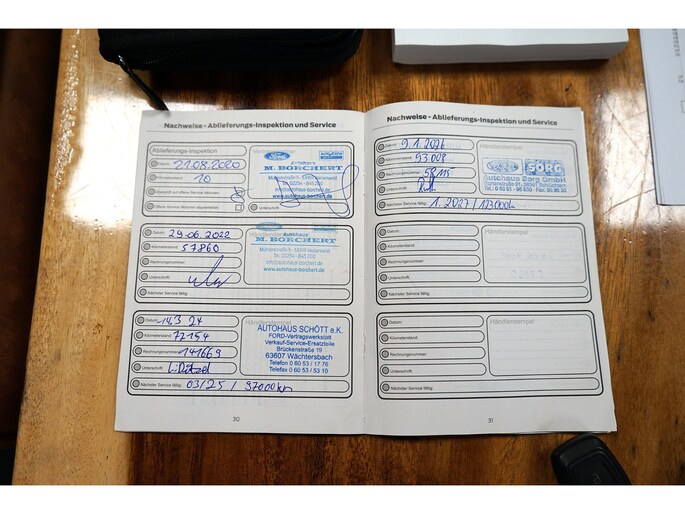 Nachweise - Ablieferungs-Inspektion und Service
Ablieferungs-Inspektion
Datum: 21.08.2020
Kilometerstand: 10
Ford
Autohaus
M. BORCHERT
www.autohaus-borchert.de
Unterschrift
Datum: 29.06.2022
Kilometerstand: 57860
Rechnungsnummer:
Unterschrift
Nächster Service fällig:
Autohaus
M. BORCHERT
info@autohaus-borchert.de
www.autohaus-borchert.de
Datum: 14.3.24
Kilometerstand: 72154
Rechnungsnummer: 141669
Unterschrift
Nächster Service fällig: 03/25 / 97000km
Händlerstempel
AUTOHAUS SCHÖTT e.K.
FORD-Vertragswerkstatt
Verkauf-Service-Ersatzteile
Brückenstraße 19
63607 Wächtersbach
Telefon 0 60 53 / 17 76
Telefax 0 60 53 / 53 10
30
Nachweise - Ablieferungs-Inspektion und Service
Datum: 9.1.2026
Kilometerstand: 93.008
Rechnungsnummer:
Unterschrift
Nächster Service fällig: 1.2027 / 123000km
Händlerstempel
SORG
Autohaus Sorg GmbH
Datum:
Kilometerstand:
Rechnungsnummer:
Unterschrift
Nächster Service fällig:
Händlerstempel
Datum:
Kilometerstand:
Rechnungsnummer:
Unterschrift
Nächster Service fällig:
Händlerstempel
31